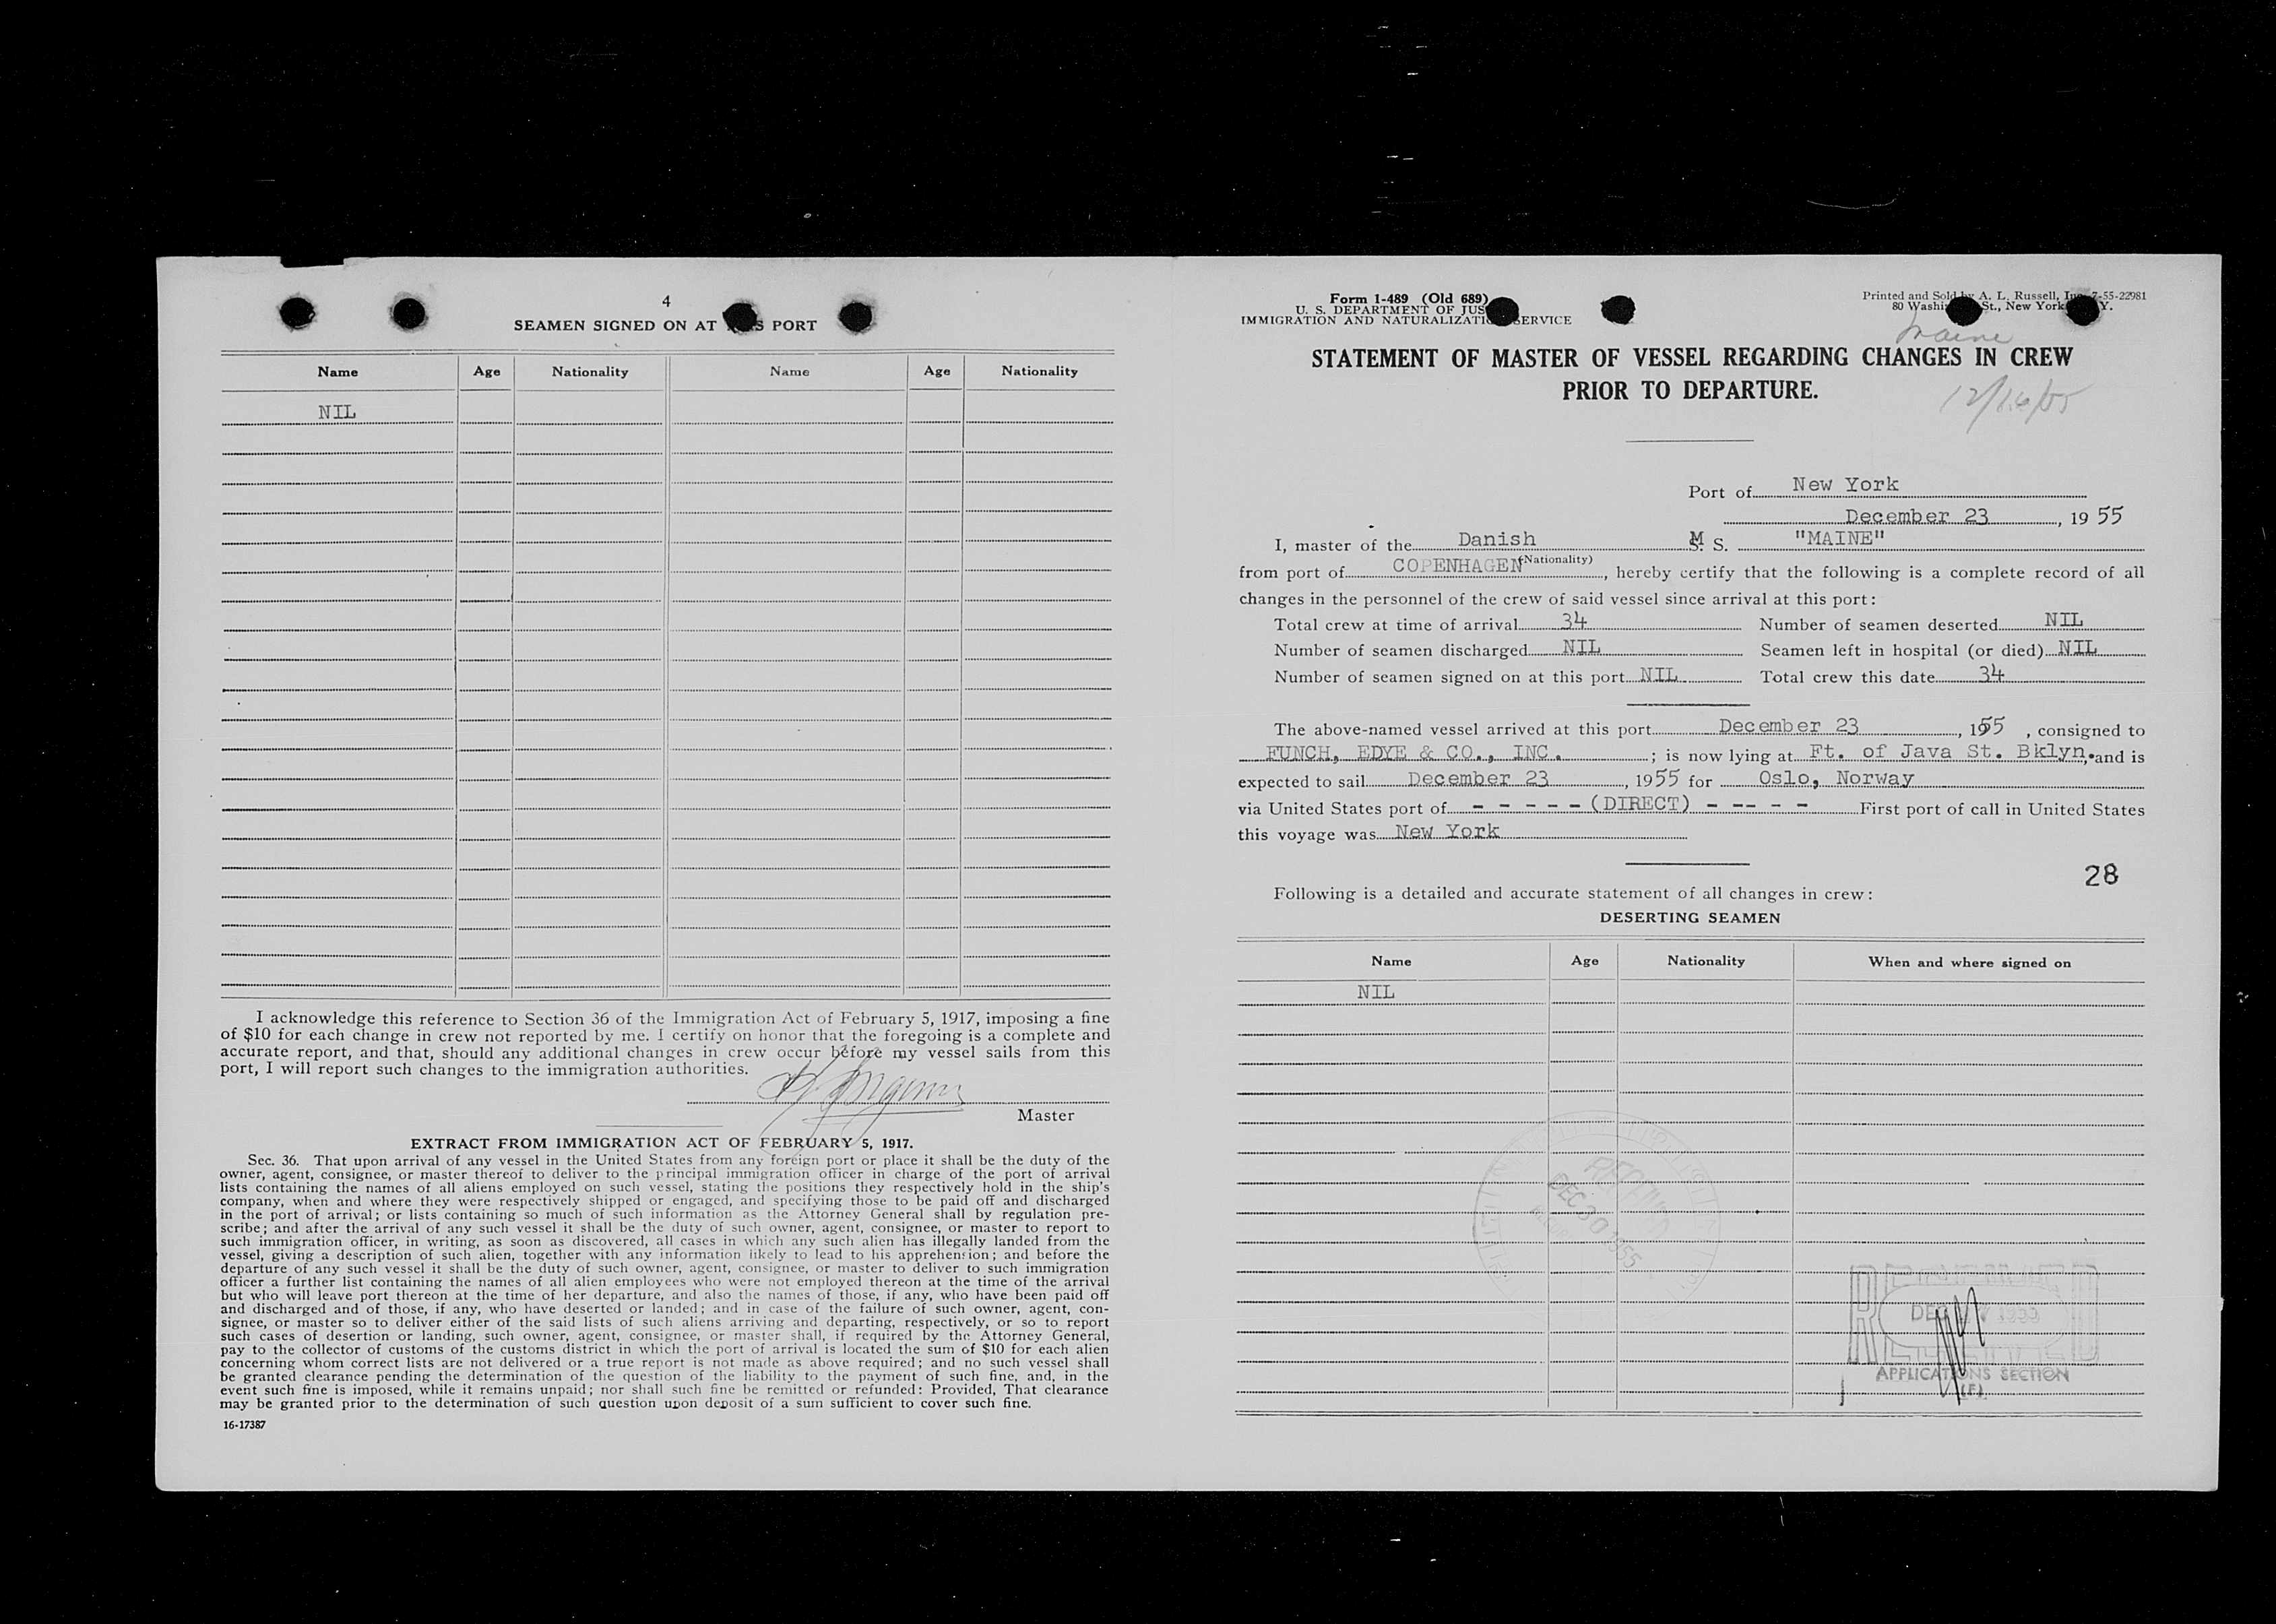 4
SEAMEN SIGNED ON AT PORT
Name Age Nationality Name Age Nationality
NIL
I acknowledge this reference to Section 36 of the Immigration Act of February 5, 1917, imposing a fine
of $10 for each change in crew not reported by me. I certify on honor that the foregoing is a complete and
accurate report, and that, should any additional changes in crew occur before my vessel sails from this
port, I will report such changes to the immigration authorities.
Master
EXTRACT FROM IMMIGRATION ACT OF FEBRUARY 5, 1917.
Sec. 36. That upon arrival of any vessel in the United States from any foreign port or place it shall be the duty of the
owner, agent, consignee, or master thereof to deliver to the principal immigration officer in charge of the port of arrival
lists containing the names of all aliens employed on such vessel, stating the positions they respectively hold in the ship's
company, when and where they were respectively shipped or engaged, and specifying those to be paid off and discharged
in the port of arrival; or lists containing so much of such information as the Attorney General shall by regulation pre-
scribe; and after the arrival of any such vessel it shall be the duty of such owner, agent, consignee, or master to report to
such immigration officer, in writing, as soon as discovered, all cases in which any such alien has illegally landed from the
vessel, giving a description of such alien, together with any information likely to lead to his apprehension; and before the
departure of any such vessel it shall be the duty of such owner, agent, consignee, or master to deliver to such immigration
officer a further list containing the names of all alien employees who were not employed thereon at the time of the arrival
but who will leave port thereon at the time of her departure, and also the names of those, if any, who have been paid off
and discharged and of those, if any, who have deserted or landed; and in case of the failure of such owner, agent, con-
signee, or master so to deliver either of the said lists of such aliens arriving and departing, respectively, or so to report
such cases of desertion or landing, such owner, agent, consignee, or master shall, if required by the Attorney General,
pay to the collector of customs of the customs district in which the port of arrival is located the sum of $10 for each alien
concerning whom correct lists are not delivered or a true report is not made as above required; and no such vessel shall
be granted clearance pending the determination of the question of the liability to the payment of such fine, and, in the
event such fine is imposed, while it remains unpaid; nor shall such fine be remitted or refunded: Provided, That clearance
may be granted prior to the determination of such question upon deposit of a sum sufficient to cover such fine.
16-17387
Form 1-489 (Old 689)
U. S. DEPARTMENT OF JUS
IMMIGRATION AND NATURALIZATIO SERVICE
Printed and Sold by A. L. Russell, Inc. 7-55-22981
80 Washi St., New York Y.
Maine
STATEMENT OF MASTER OF VESSEL REGARDING CHANGES IN CREW
PRIOR TO DEPARTURE.
12/16/55
Port of New York
December 23, 1955
I, master of the Danish M S. "MAINE"
(Nationality)
from port of COPENHAGEN, hereby certify that the following is a complete record of all
changes in the personnel of the crew of said vessel since arrival at this port:
Total crew at time of arrival 34 Number of seamen deserted NIL
Number of seamen discharged NIL Seamen left in hospital (or died) NIL
Number of seamen signed on at this port NIL Total crew this date 34
The above-named vessel arrived at this port December 23, 1955, consigned to
FUNCH, EDYE & CO., INC.; is now lying at Ft. of Java St. Bklyn, and is
expected to sail December 23, 1955 for Oslo, Norway
via United States port of - - - - - (DIRECT) - -- - - First port of call in United States
this voyage was New York
28
Following is a detailed and accurate statement of all changes in crew:
DESERTING SEAMEN
Name Age Nationality When and where signed on
NIL
DEC 30 1955
APPLICATIONS SECTION